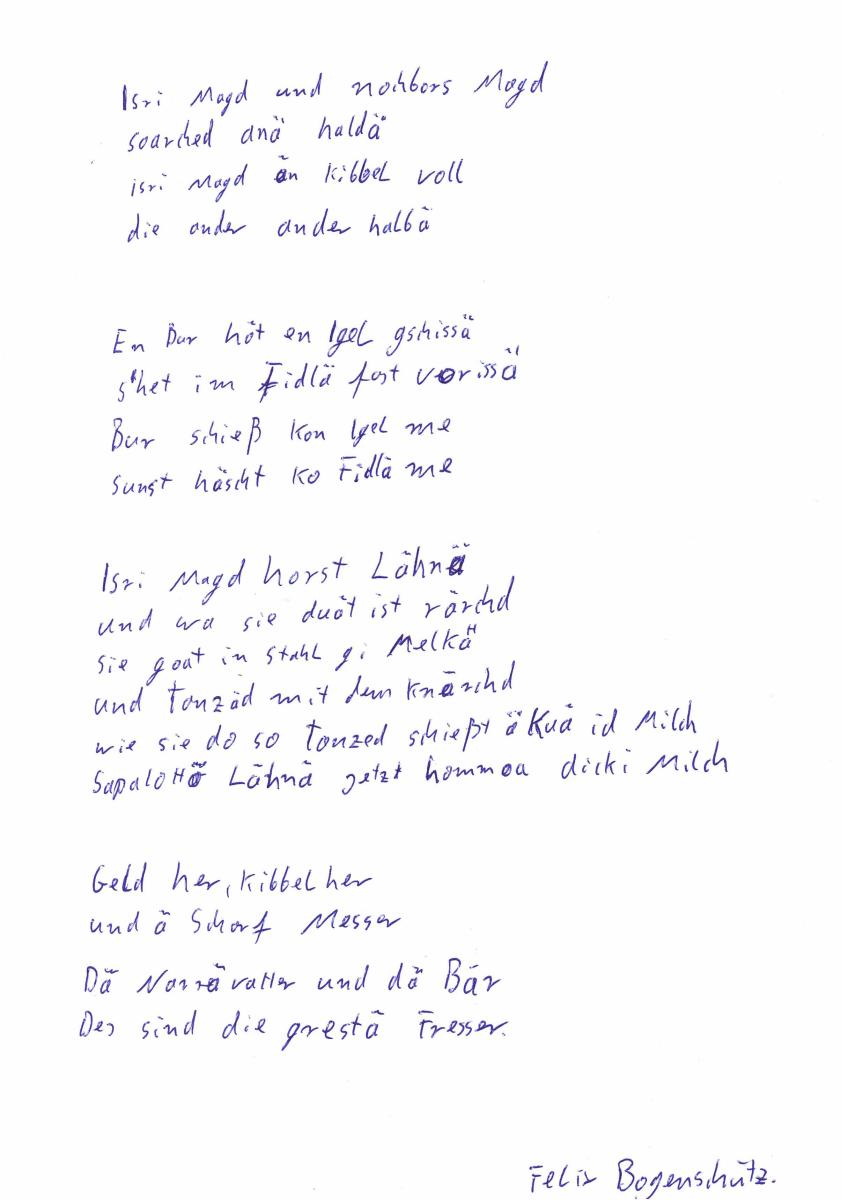 Isri Magd und nochbors Magd
soarched anä haldä
isri Magd än Kibbel voll
die ander ander halbä
En Bur hot en Igel gshissä
s'het im Fidlä fast vorissä
Bur schieß kon Igel me
Sunst häscht ko Fidlä me
Isri Magd horst Lähnä
und wa sie duät ist rärchd
sie goat in stahl gi Melkä
und Tonzäd mit dem Knärchd
wie sie do so Tonzed schießt ä Kuä id Milch
Sapalottö Lähnä jetzt hommoa dicki Milch
Geld her, Kibbel her
und ä Scharf Messer
Dä Narrävatter und dä Bär
Des sind die grestä Fresser.
Felix Bogenschütz.